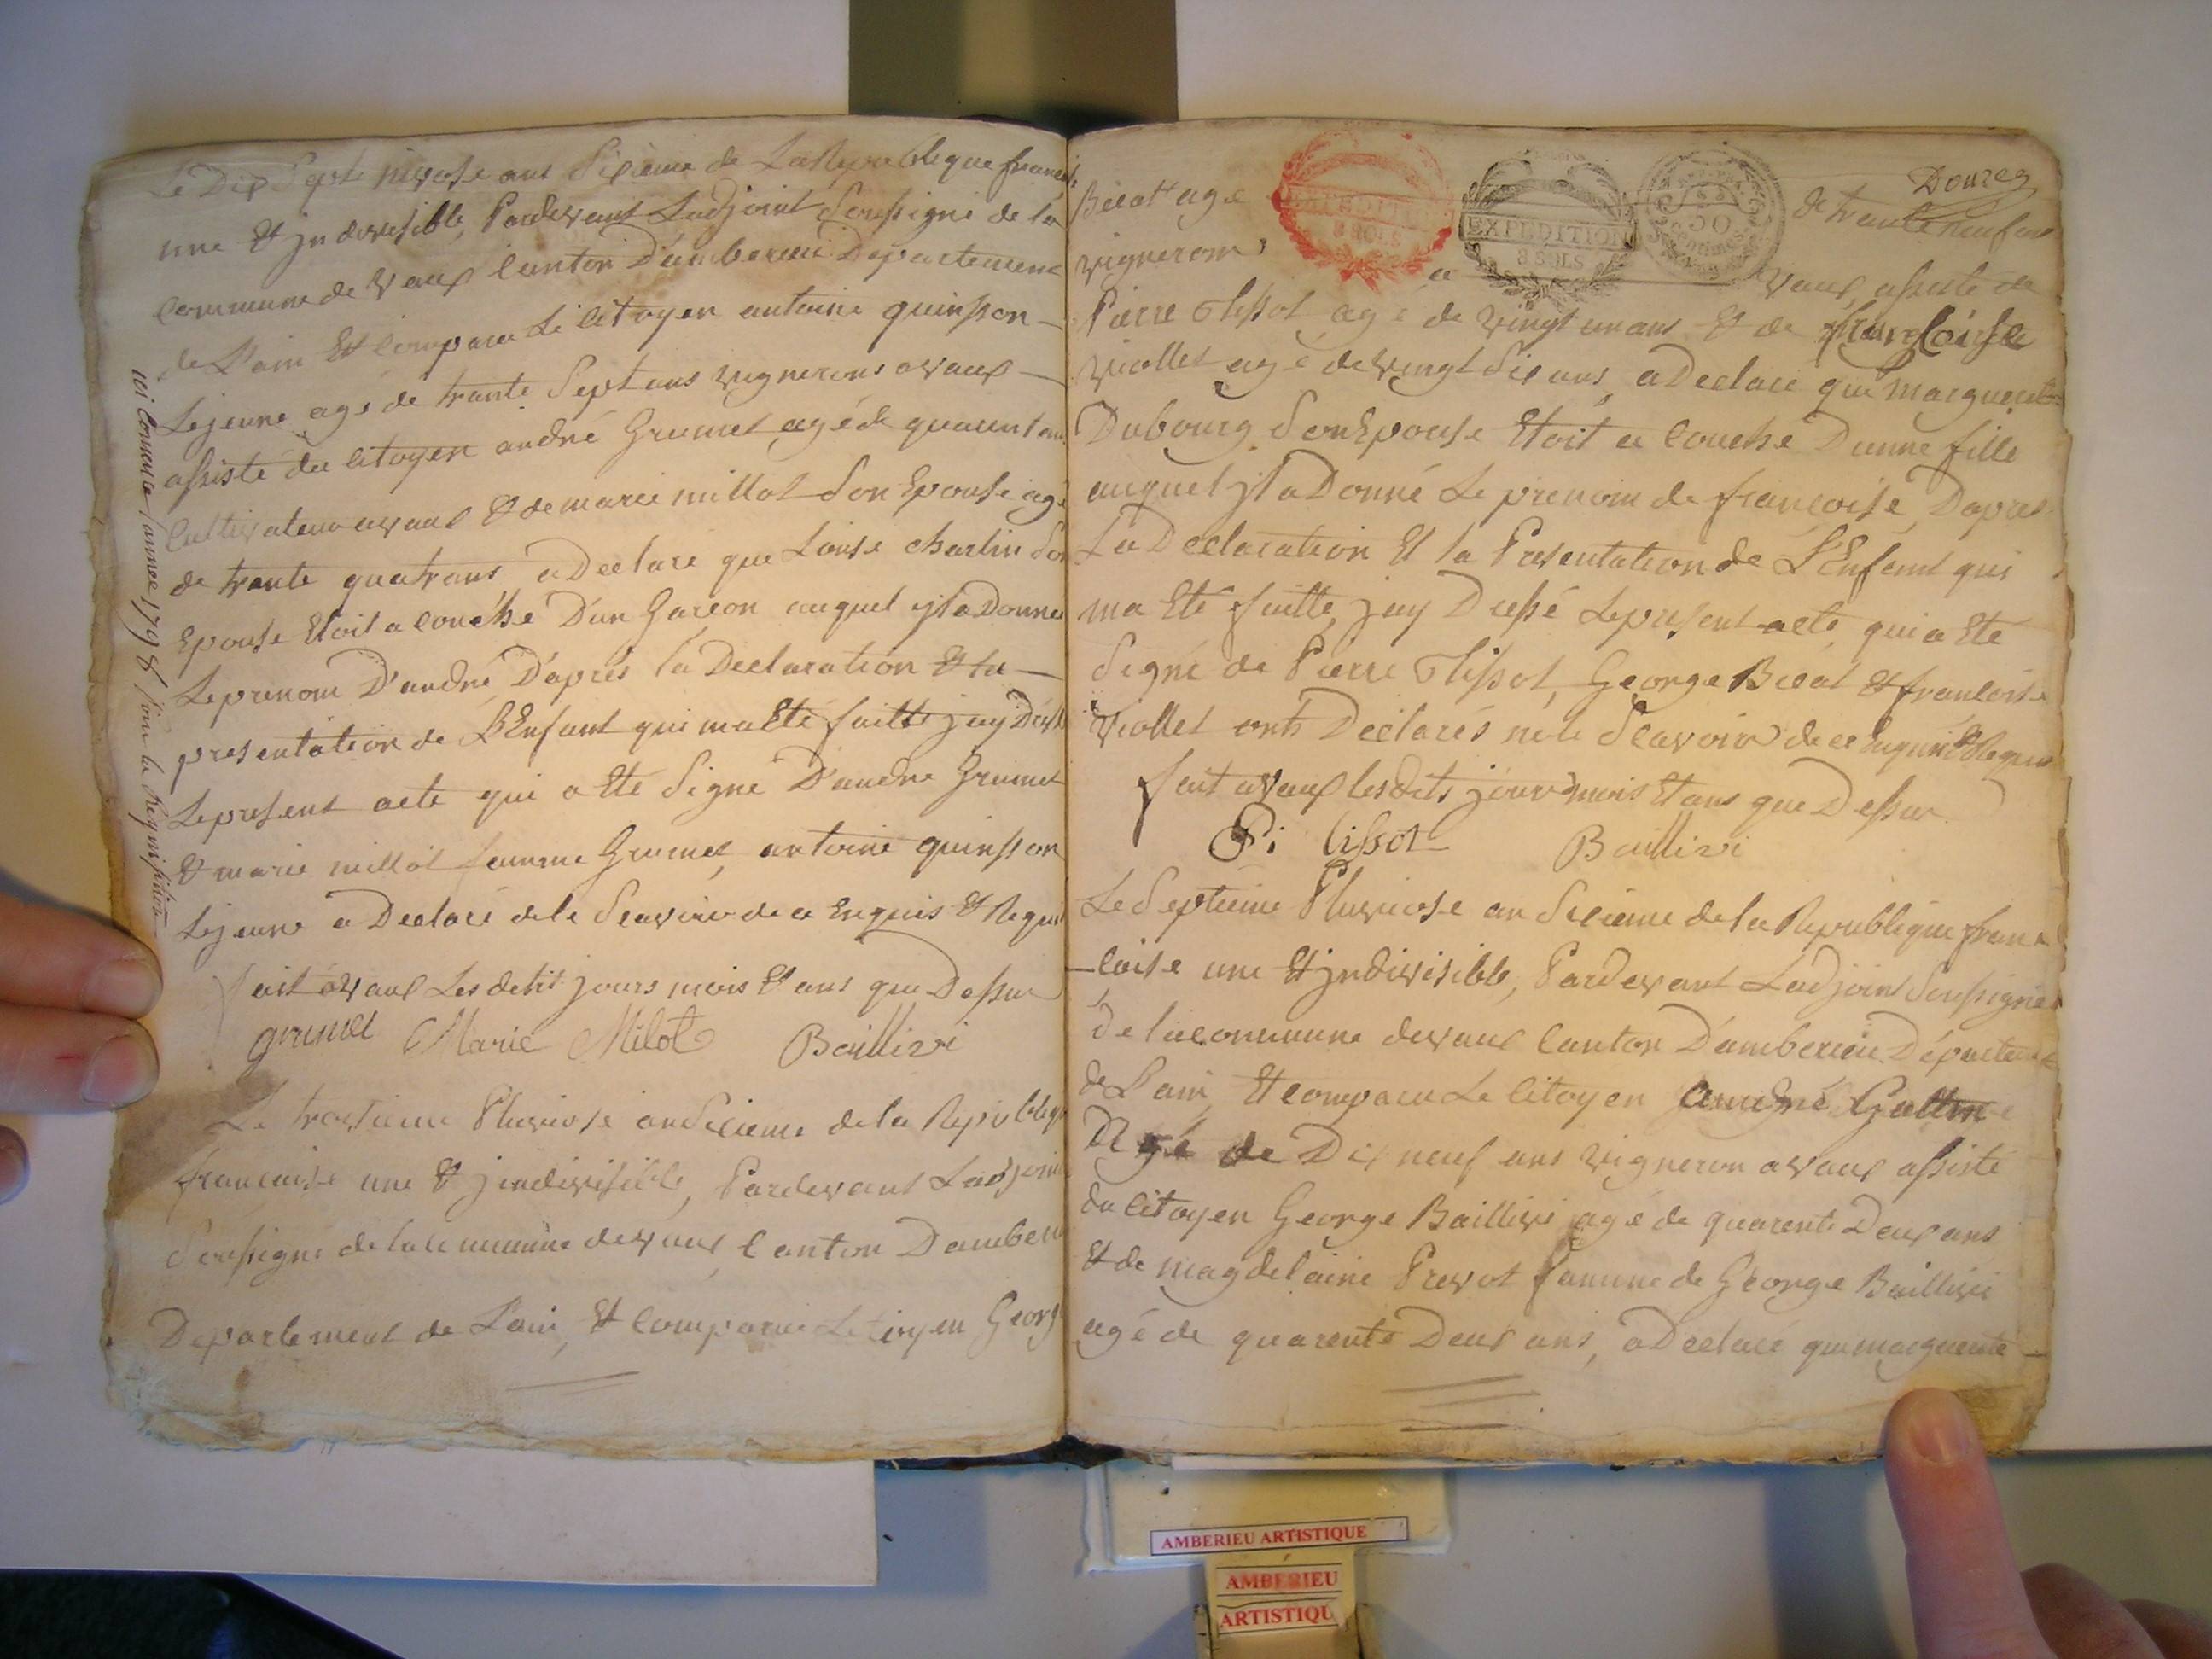 Le Dix Septe nivose ans Sixieme de La Republique francois
une Et jndivisible, Pardevant Ladjoint Soussigné de la
Commune de Vaux Canton D'amberieu Departement
de L'ain Et Comparu Le Citoyen antoine quinsson
Lejeune age de trante Sept ans vignerons a vaux
assisté du Citoyen andré Grumet agé de quarent ans
Cultivateur a vaux & de marie millot Son Epouse age
de trante quatr ans a Declaré que Louise charlin Son
Epouse Etoit a couché D'un Garcon auquel jl a Donnée
Le prenom D'andré D'aprés la Declaration Et la
presentation de L'Enfant qui ma Eté faitte jay Dressé
Le present acte qui a Eté Signé D'andre Grumet
& marie millot famme Grumet, antoine quinsson
Lejeune a Declaré de le Scavoire de ce Enquis Et Requis
fait a vaux Les detit jours mois Et ans que Dessus
grumet Marie Milot Baillivi
Le troisieme Pluviose an Sixieme de la Republique
francaise une & jindivisible, Pardevant Ladjoint
Soussigne de la Commune de vaux Canton Damberieu
Departement de L'ain, Et Comparu Le Citoyen George
ici Comence l'annee 1798 pour la Requisition
Douzeg
Bicat age de trante neuf ans
vigneron a vaux, assisté de
EXPEDITION
8 SOLS
EXPEDITION
8 SOLS
50
CENTIMES
Pierre Tissot agé de vingt un ans & de francloise
viollet agé de vingt Six ans, a Declaré que marguerite
Dubourg Son Epouse Etoit a couché D'unne fille
auquel jl a Donné Le prenom de francoise, Dapres
La Declaration Et la Presentation de L'Enfant qui
ma Eté faitte, jay Dressé Le present acte qui a Eté
Signé de Pierre Tissot, George Bicat Et francoise
viollet onts Declarés ne le Scavoir de ce Enquis Et Requis
fait a vaux lesdits jour mois Et ans que Dessus
Pi tissot Baillivi
Le Septieme Pluviose an Sixieme de la Republique fran
-coise une Et jndivisible, Pardevant Ladjoint Soussigné
De la commune de vaux Canton D'amberieu Departement
de L'ain Et comparu Le Citoyen André Galtin
Agé de Dix neuf ans vigneron a vaux assisté
du Citoyen George Baillivi agé de quarente Deux ans
Et de magdelaine Prevot famme de George Baillivi
agé de quarente Deux ans, a Declaré que marguerite
AMBERIEU ARTISTIQUE
AMBERIEU
ARTISTIQU